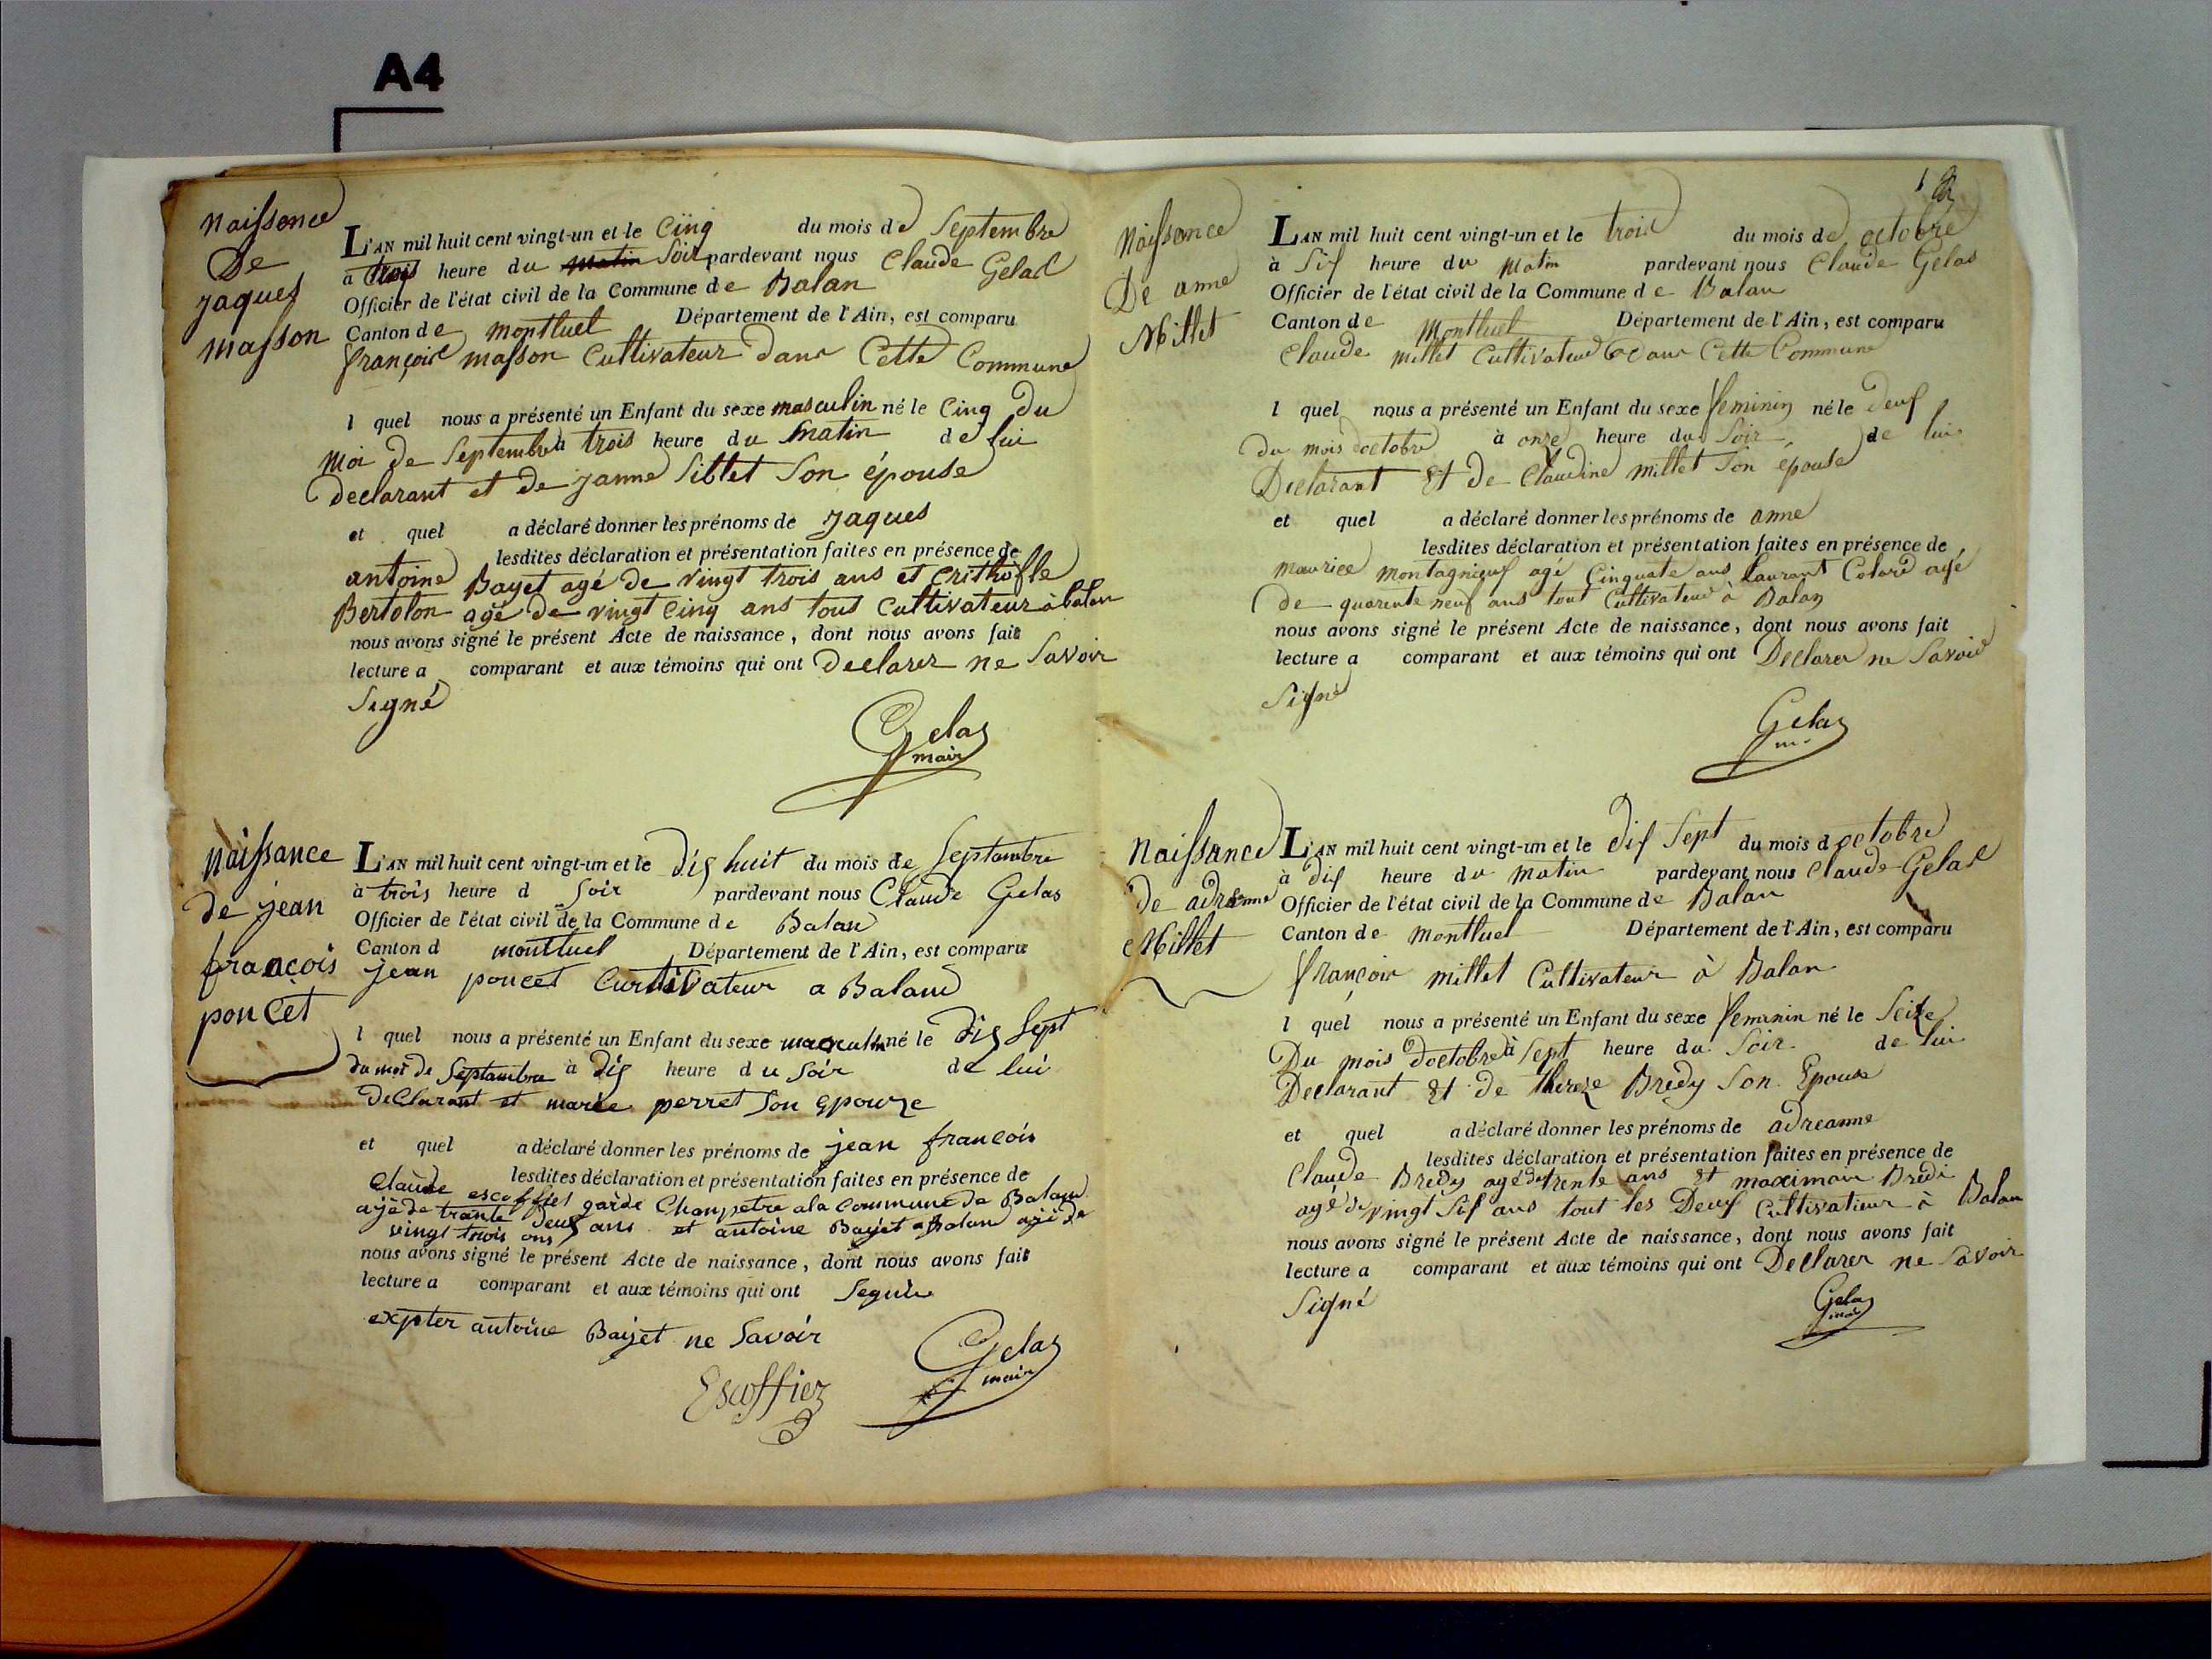 A4
Naissence
De
jaques
masson
L'AN mil huit cent vingt-un et le Cinq du mois de Septembre
à trois heure du matin Soir pardevant nous Claude Gelas
Officier de l'état civil de la Commune de Balan
Canton de montluel Département de l'Ain, est comparu
françois masson Cultivateur dans Cette Commune
l quel nous a présenté un Enfant du sexe masculin né le Cinq Du
moi de Septembre à trois heure du matin de lui
declarant et de janne Siblet Son épouse
et quel a déclaré donner les prénoms de jaques
lesdites déclaration et présentation faites en présence de
antoine Bayet agé de vingt trois ans et Crithofle
Bertolon agé de vingt Cinq ans tous Cultivateur à balan
nous avons signé le présent Acte de naissance, dont nous avons fait
lecture a comparant et aux témoins qui ont Declarer ne Savoir
Signé
Gelas
mair
Naissance
de jean
francois
poncet
L'AN mil huit cent vingt-un et le Dis huit du mois de Septambre
à trois heure d Soir pardevant nous Claude Gelas
Officier de l'état civil de la Commune de Balan
Canton d montluel Département de l'Ain, est comparu
jean poncet Curtivateur a Baland
l quel nous a présenté un Enfant du sexe masculin né le Dis Sept
du moi de Septambre à Dis heure du Soir de lui
DeClarant et marie perret Son Epouze
et quel a déclaré donner les prénoms de jean francois
lesdites déclaration et présentation faites en présence de
Claude escoffier garde Champetre a la Commune de Baland
ajé de trante Deus ans et antoine Bayet a Baland ajé de
vingt trois ans
nous avons signé le présent Acte de naissance, dont nous avons fait
lecture a comparant et aux témoins qui ont Segnié
expter antoine Baijet ne Savoir
Escoffier
Gelas
mair
Naissance
De anne
Millet
L'AN mil huit cent vingt-un et le trois du mois de octobre
à Six heure du matin pardevant nous Claude Gelas
Officier de l'état civil de la Commune de Balan
Canton de Montluel Département de l'Ain, est comparu
Claude millet Cultivateur Dans Cette Commune
l quel nous a présenté un Enfant du sexe feminin né le Deux
du mois doctobre à onze heure du Soir de lui
Declarant Et de Claudine millet Son epouse
et quel a déclaré donner les prénoms de anne
lesdites déclaration et présentation faites en présence de
maurice montagnieux agé Cinquate ans Laurant Colard agé
de quarente neuf ans tout Cultivateur à Balan
nous avons signé le présent Acte de naissance, dont nous avons fait
lecture a comparant et aux témoins qui ont Declarer ne Savoir
Signé
Gelas
m
Naissance
De adreanne
Millet
L'AN mil huit cent vingt-un et le dix Sept du mois d octobre
à dix heure du matin pardevant nous Claude Gelas
Officier de l'état civil de la Commune de Balan
Canton de Montluel Département de l'Ain, est comparu
françoir millet Cultivateur à Balan
l quel nous a présenté un Enfant du sexe feminin né le Seize
Du mois doctobre à Sept heure du Soir de lui
Declarant Et de thereze Bredy Son Epouse
et quel a déclaré donner les prénoms de adreanne
lesdites déclaration et présentation faites en présence de
Claude Bredy agé de trente ans Et maximain Bredi
agé de vingt Six ans tout les Deux Cultivatieur à Balan
nous avons signé le présent Acte de naissance, dont nous avons fait
lecture a comparant et aux témoins qui ont Declarer ne Savoir
Signé
Gelas
mair